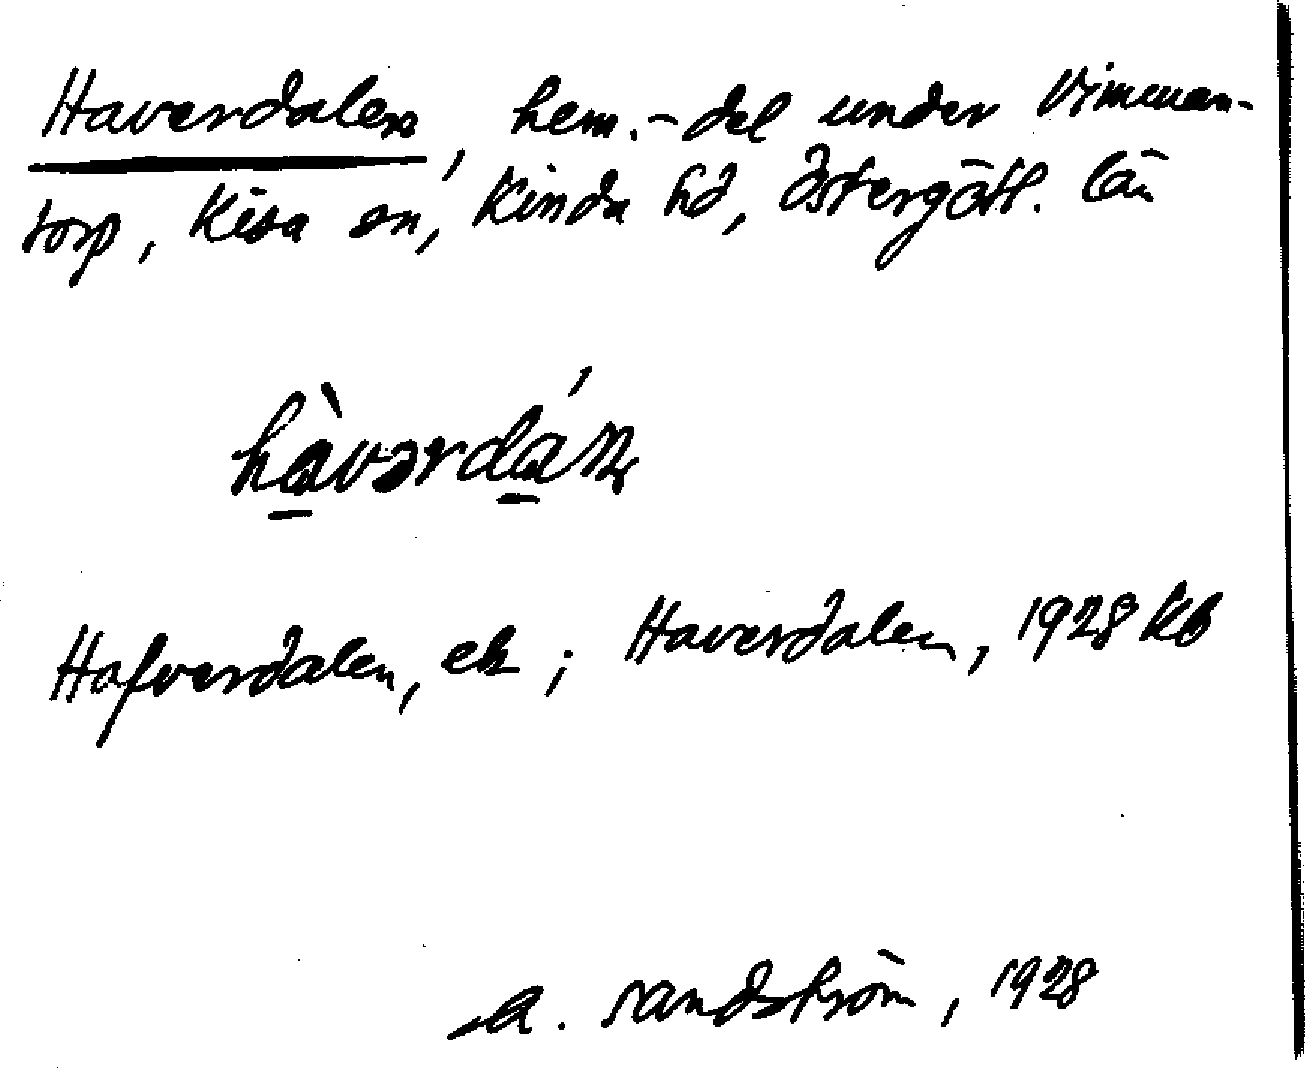 Haverdalen, hem.-del under Vimman-
torp, Kisa sn, Kinda hd, Östergötl. län
hàvərdán
Hafverdalen, ek; Haverdalen, 1928 kb
A. Sandström, 1928